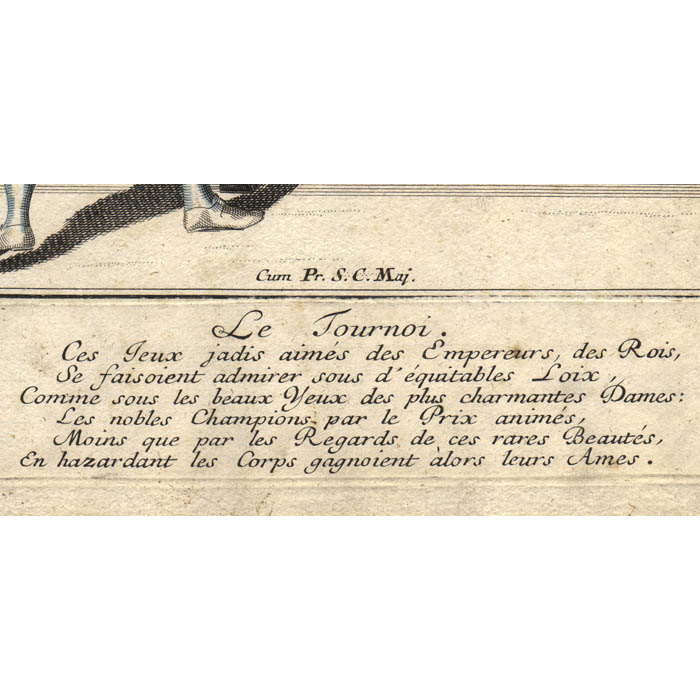 Cum Pr. S. C. Maj.
Le Tournoi.
Ces Jeux jadis aimés des Empereurs, des Rois,
Se faisoient admirer sous d'équitables Loix,
Comme sous les beaux Yeux des plus charmantes Dames:
Les nobles Champions par le Prix animés,
Moins que par les Regards de ces rares Beautés,
En hazardant les Corps gagnoient àlors leurs Ames.